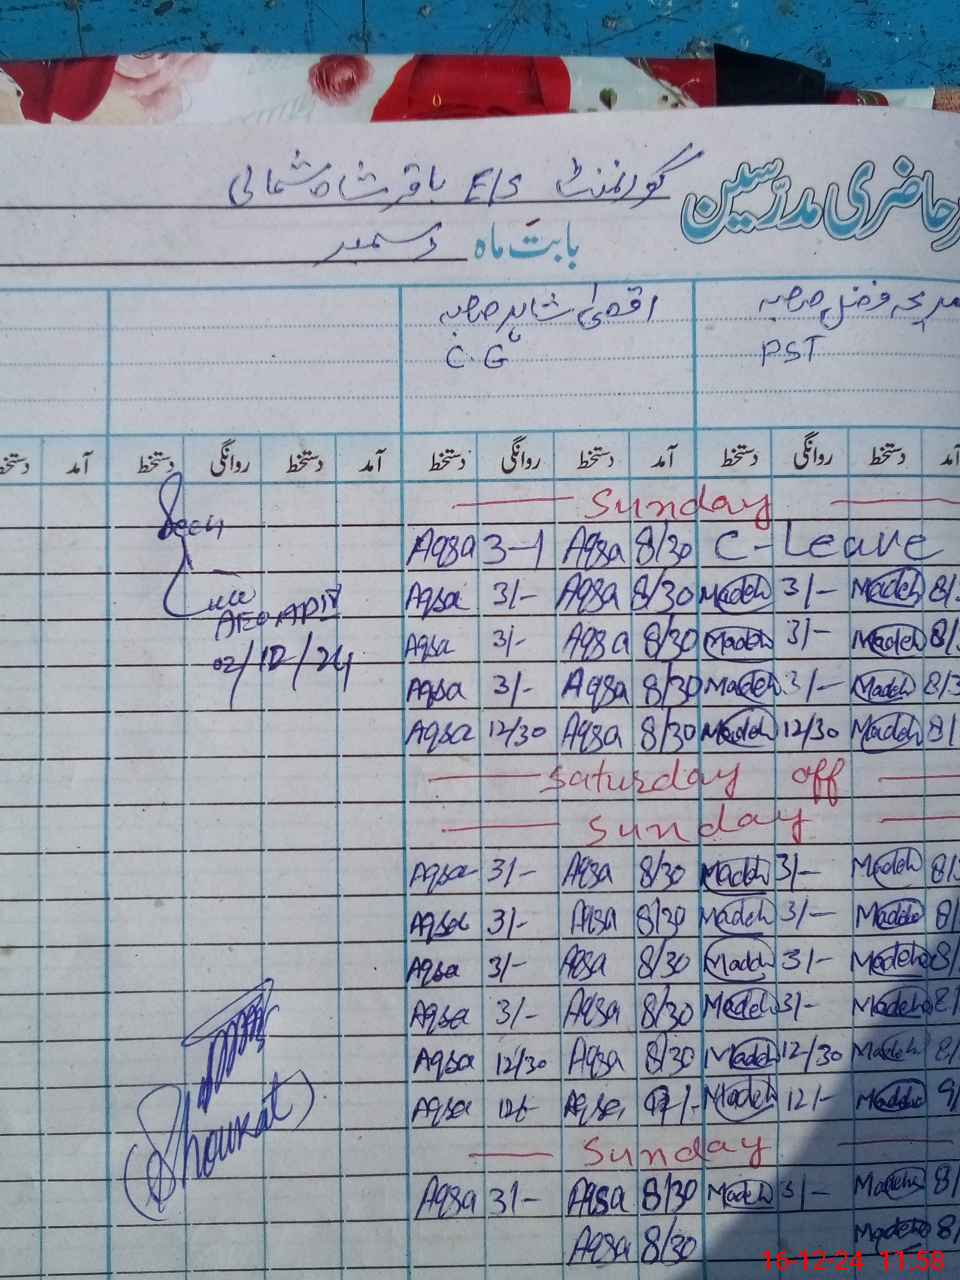 حاضری مدرسین گورنمنٹ E/S باقر شاہ شمالی
بابت ماہ دسمبر
مدیحہ فضل صاحبہ اقصیٰ شاہد صاحبہ
PST C.G
آمد دستخط روانگی دستخط آمد دستخط روانگی دستخط آمد دستخط روانگی دستخط آمد دستخط
Sunday
Aqsa 3-1 Aqsa 8/30 C-Leave
Aqsa 3/- Aqsa 8/30 Madeh 3/- Madeh 8/3
AEO
Aqsa 3/- Aqsa 8/30 Madeh 3/- Madeh 8/3
02/12/24
Aqsa 3/- Aqsa 8/30 Madeh 3/- Madeh 8/3
Aqsa 12/30 Aqsa 8/30 Madeh 12/30 Madeh 8/
Saturday off
Sunday
Aqsa 3/- Aqsa 8/30 Madeh 3/- Madeh 8/3
Aqsa 3/- Aqsa 8/30 Madeh 3/- Madeh 8/
Aqsa 3/- Aqsa 8/30 Madeh 3/- Madeh 8/
Aqsa 3/- Aqsa 8/30 Madeh 3/- Madeh 8/
Aqsa 12/30 Aqsa 8/30 Madeh 12/30 Madeh 8/
Aqsa Aqsa Madeh 12/- Madeh 9/
Shoukat
Sunday
Aqsa 3/- Aqsa 8/30 Madeh 3/- Madeh 8/
Aqsa 8/30 Madeh 8/
16-12-24 11:58